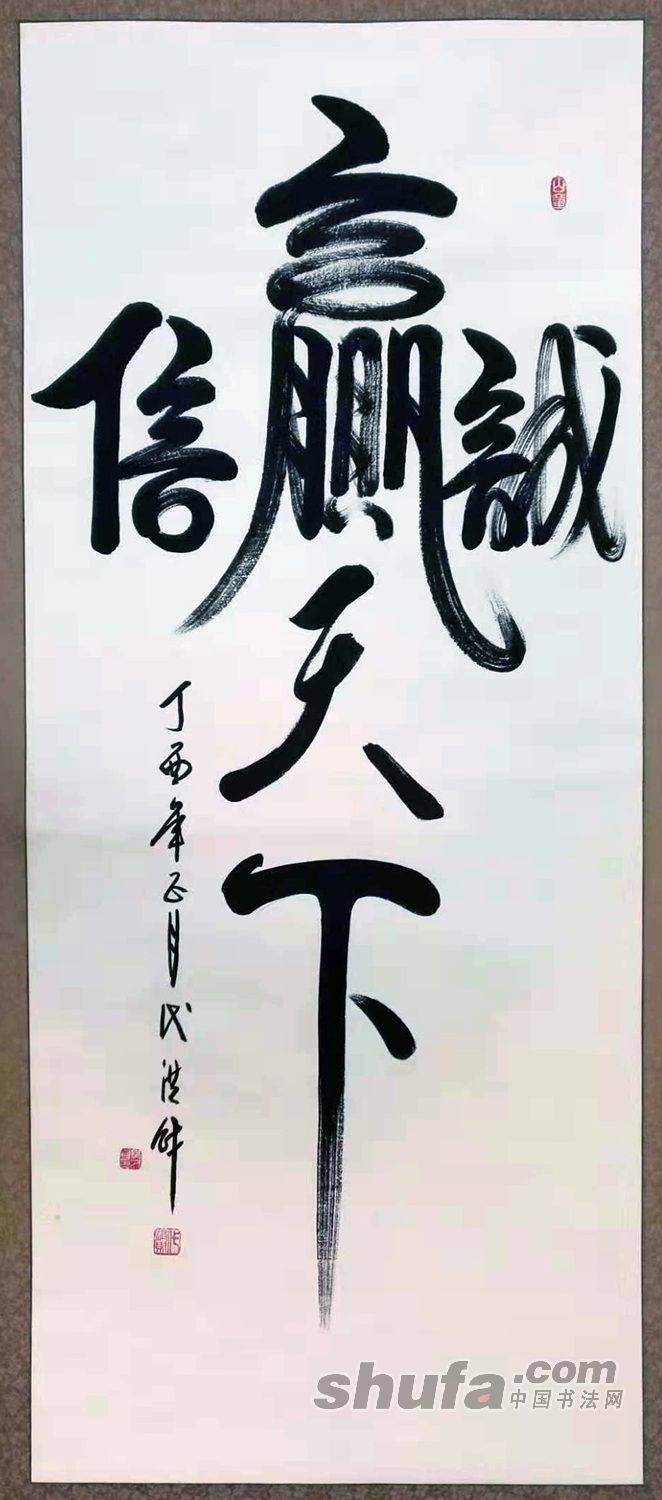 誠信
贏天下
丁酉年正月代洪
shufa.com
中国书法网